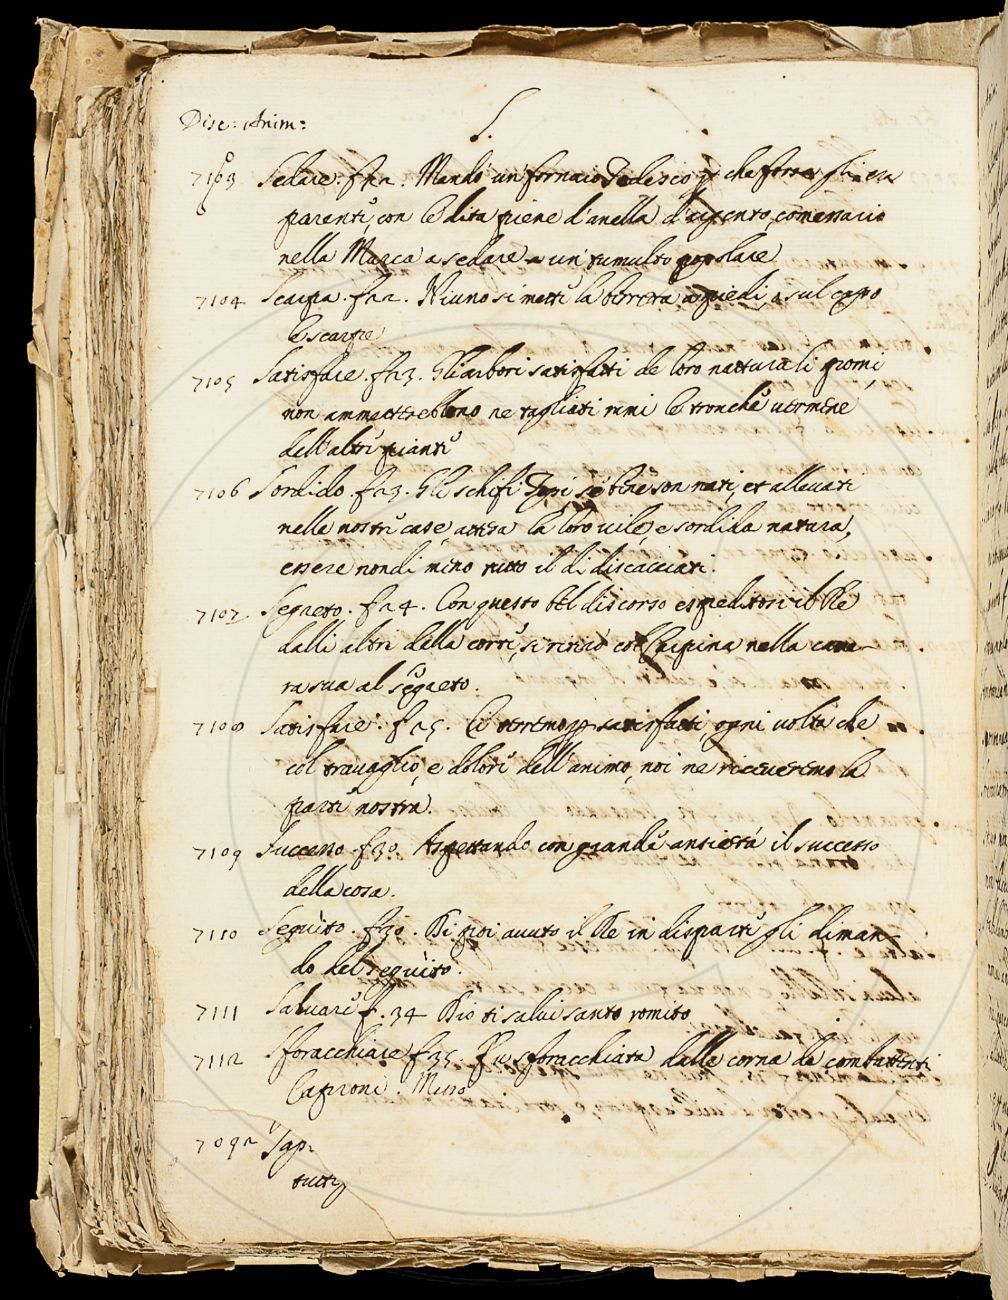 Disc: Anim:
S.
7103 Sedare. f 22. Mandò un fornaio Tedesco p che forse gli era
parente, con le dita piene d'anella d'argento, comessario
nella Marca a sedare un tumulto popolare
7104 Scarpa. f 22. Niuno si mette la berreta a piedi, o sul capo
le scarpe
7105 Satisfare. f 23. Gli arbori satisfatti de loro natturali promi,
non ammetterebbono ne tagliati rami le tronche vermene
dell'altre piante
7106 Sordido. f 23. Gli schifi Topi se bene son nati, et allevati
nelle nostre case, attesa la loro vile, e sordida natura,
essere nondimino tutto il di discacciati.
7107 Segreto. f 24. Con questo bel discorso espeditosi il Re
dalli altri della corte, si ritirò col Chipina nella came-
ra sua al segreto.
7108 Satisfare. f 25. Ci terremo p satisfatti, ogni volta che
col travaglio, e dolore dell'animo, noi ne riceveremo la
parte nostra.
7109 Successo. f 30. Aspettando con grande ansietà il successo
della cosa.
7110 Seguito. f 30. Di poi avuto il Re in disparte gli diman-
do del seguito.
7111 Salvare f. 34 Dio ti salvi santo romito
7112 Sforacchiare f 35. Fu sforacchiata dalle corna de combattenti
Caproni. Messo
7092 Sap
tutti